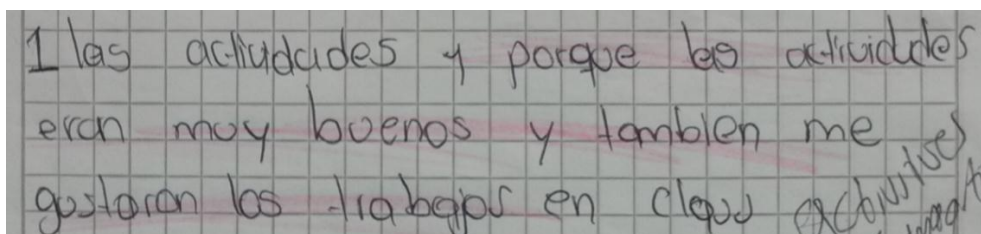 1 las actiudades y porque las actividades
eran muy buenos y tambien me
gustaron los trabajos en